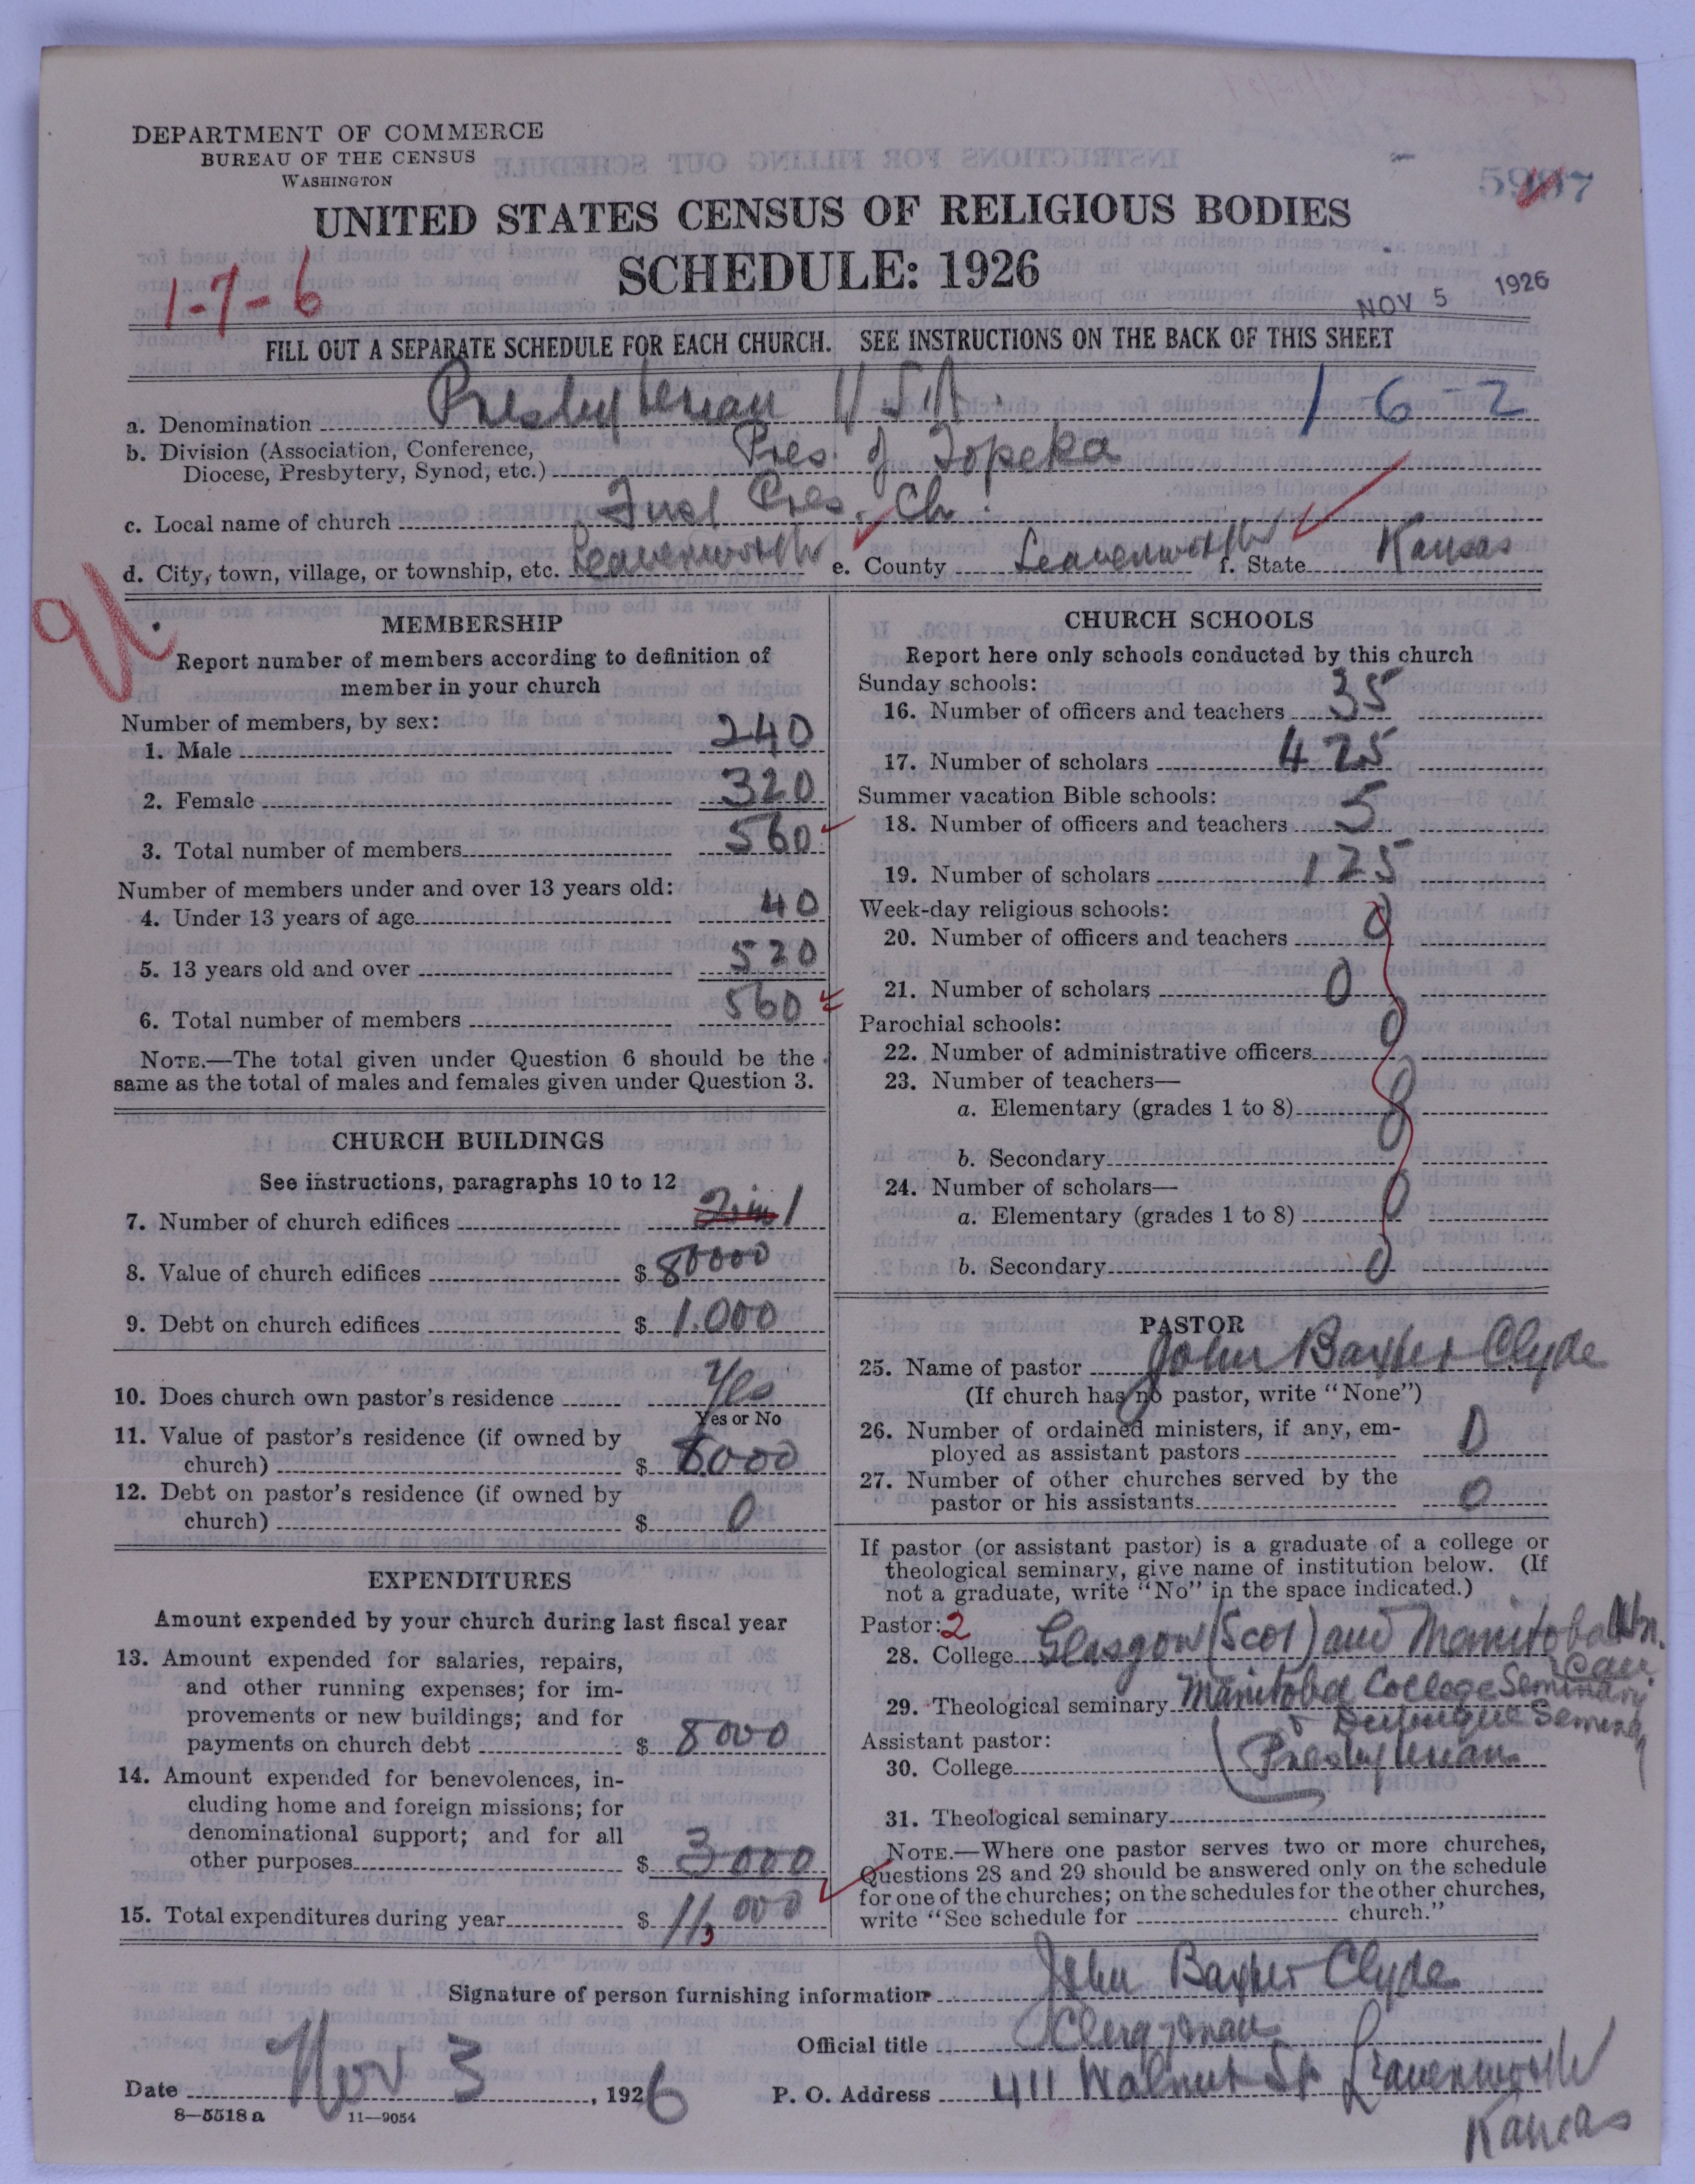 DEPARTMENT OF COMMERCE
BUREAU OF THE CENSUS
WASHINGTON
UNITED STATES CENSUS OF RELIGIOUS BODIES
SCHEDULE: 1926
1-7-6
NOV 5 1926
FILL OUT A SEPARATE SCHEDULE FOR EACH CHURCH. SEE INSTRUCTIONS ON THE BACK OF THIS SHEET
a. Denomination Presbyterian U.S.A. 1-6-2
b. Division (Association, Conference,
Diocese, Presbytery, Synod, etc.) Pres. of Topeka
c. Local name of church First Pres. Ch.
d. City, town, village, or township, etc. Leavenworth e. County Leavenworth f. State Kansas
MEMBERSHIP
Report number of members according to definition of
member in your church
Number of members, by sex:
1. Male 240
2. Female 320
3. Total number of members 560
Number of members under and over 13 years old:
4. Under 13 years of age 40
5. 13 years old and over 520
6. Total number of members 560
NOTE.—The total given under Question 6 should be the
same as the total of males and females given under Question 3.
CHURCH BUILDINGS
See instructions, paragraphs 10 to 12
7. Number of church edifices 2 in 1
8. Value of church edifices $ 80000
9. Debt on church edifices $ 1.000
10. Does church own pastor's residence Yes
Yes or No
11. Value of pastor's residence (if owned by
church) $ 8000
12. Debt on pastor's residence (if owned by
church) $ 0
EXPENDITURES
Amount expended by your church during last fiscal year
13. Amount expended for salaries, repairs,
and other running expenses; for im-
provements or new buildings; and for
payments on church debt $ 8000
14. Amount expended for benevolences, in-
cluding home and foreign missions; for
denominational support; and for all
other purposes $ 3000
15. Total expenditures during year $ 11,000
CHURCH SCHOOLS
Report here only schools conducted by this church
Sunday schools:
16. Number of officers and teachers 35
17. Number of scholars 425
Summer vacation Bible schools:
18. Number of officers and teachers 5
19. Number of scholars 125
Week-day religious schools:
20. Number of officers and teachers 0
21. Number of scholars 0
Parochial schools:
22. Number of administrative officers 0
23. Number of teachers—
a. Elementary (grades 1 to 8) 0
b. Secondary
24. Number of scholars—
a. Elementary (grades 1 to 8) 0
b. Secondary 0
PASTOR
25. Name of pastor John Baxter Clyde
(If church has no pastor, write "None")
26. Number of ordained ministers, if any, em-
ployed as assistant pastors 0
27. Number of other churches served by the
pastor or his assistants 0
If pastor (or assistant pastor) is a graduate of a college or
theological seminary, give name of institution below. (If
not a graduate, write "No" in the space indicated.)
Pastor: 2
28. College Glasgow (Scot) and Manitoba
Can
29. Theological seminary Manitoba College Seminary
Assistant pastor:
30. College Presbyterian
31. Theological seminary
NOTE.—Where one pastor serves two or more churches,
Questions 28 and 29 should be answered only on the schedule
for one of the churches; on the schedules for the other churches,
write "See schedule for church."
Signature of person furnishing information John Baxter Clyde
Official title Clergyman
Date Nov 3, 1926 P. O. Address 411 Walnut St Leavenworth
Kansas
8—5518 a 11—9054